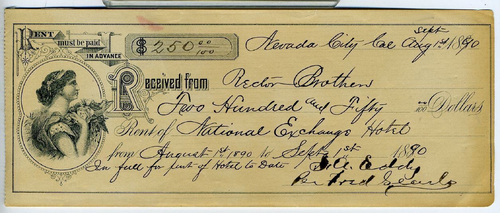 RENT must be paid IN ADVANCE
$ 250 00/100
Sept
Nevada City Cal Aug 1st 1890
Received from Rector Brothers
Two Hundred and Fifty 00/100 Dollars
Rent of National Exchange Hotel
from August 1st 1890 to Sept 1st 1890
In full for rent of Hotel to Date